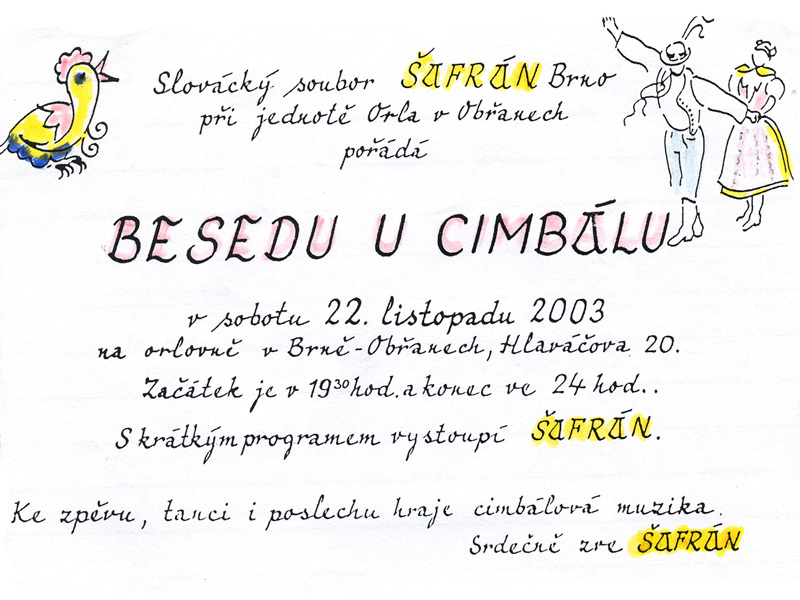 Slovácký soubor ŠAFRÁN Brno
při jednotě Orla v Obřanech
pořádá
BESEDU U CIMBÁLU
v sobotu 22. listopadu 2003
na orlovně v Brně-Obřanech, Hlaváčova 20.
Začátek je v 19³⁰ hod. a konec ve 24 hod..
S krátkým programem vystoupí ŠAFRÁN.
Ke zpěvu, tanci i poslechu hraje cimbálová muzika.
Srdečně zve ŠAFRÁN